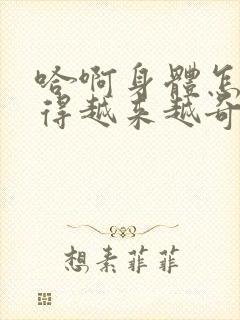 哈啊身體怎
得越來越奇
想素菲菲